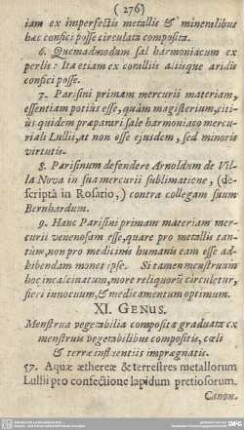 ( 276 )
iam ex imperfectis metallis & mineralibus
hac confici posse circulata composita.
6. Quemadmodum sal harmoniacum ex
perlis: Ita etiam ex corallis aliisque aridis
confici posse.
7. Parisini primam mercurii materiam,
essentiam potius esse, quàm magisterium, citi-
ùs quidem præparari sale harmoniaco mercu-
riali Lullii, at non esse ejusdem, sed minoris
virtutis.
8. Parisinum defendere Arnoldum de Vil-
la Nova in sua mercurii sublimatione, (de-
scriptâ in Rosario,) contra collegam suum
Bernhardum.
9. Hanc Parisini primam materiam mer-
curii venenosam esse, quare pro metallis tan-
tùm, non pro medicinis humanis eam esse ad-
hibendam monet ipse. Si tamen menstruum
hoc incalcinatum, more reliquorũ circuletur,
fieri innocuum, & medicamentum optimum.
XI. GENUS.
Menstrua vegetabilia composita graduata ex
menstruis vegetabilibus compositis, cœli
& terræ influentiis imprægnatis.
57. Aquæ æthereæ & terrestres metallorum
Lullii pro confectione lapidum pretiosorum.
Canon.